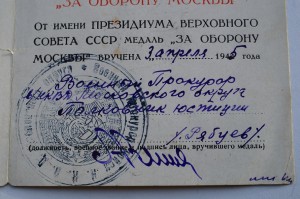 "ЗА ОБОРОНУ МОСКВЫ"
ОТ ИМЕНИ ПРЕЗИДИУМА ВЕРХОВНОГО
СОВЕТА СССР МЕДАЛЬ „ЗА ОБОРОНУ
МОСКВЫ" ВРУЧЕНА 3 апреля 1945 года
Военный Прокурор
Московского округа
Полковник юстиции
/Рябцев/
(должность, военное звание и подпись лица, вручившего медаль)